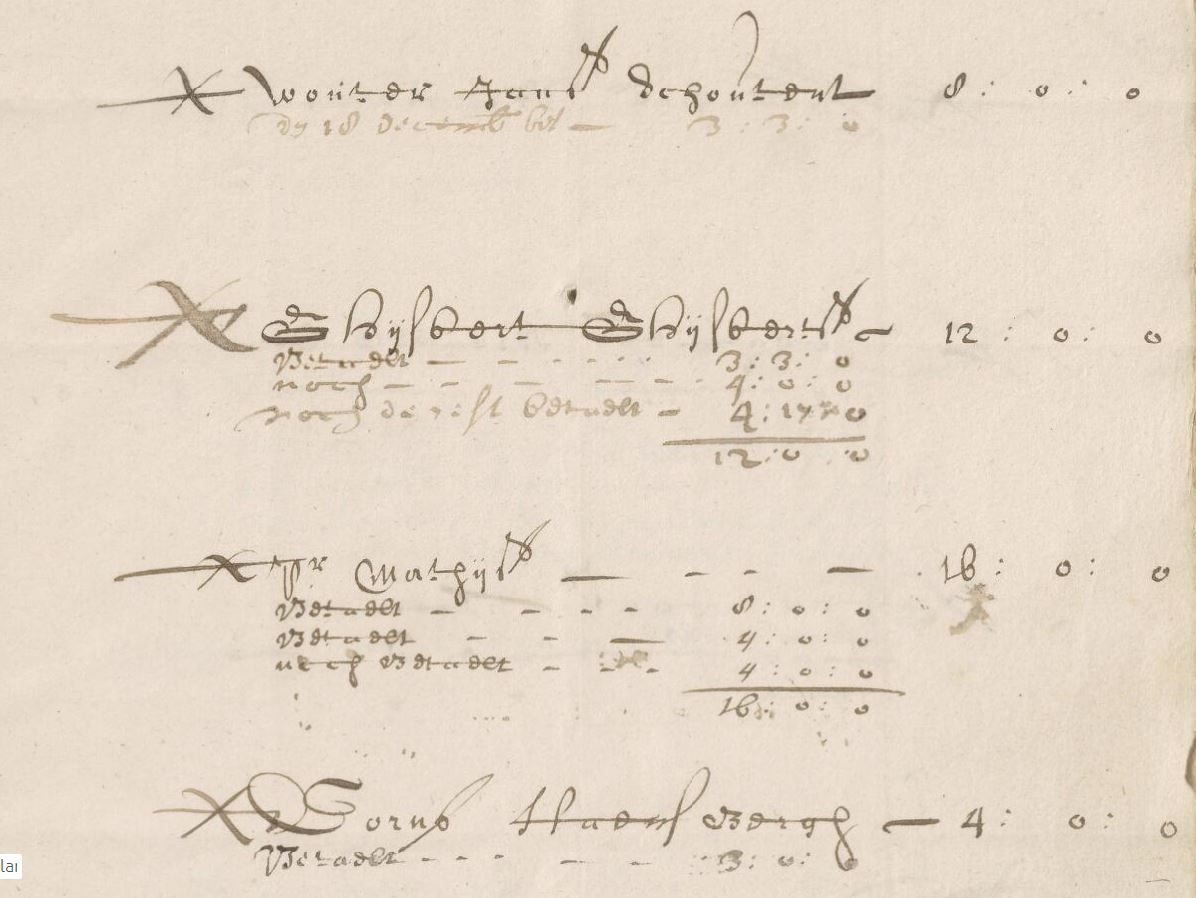 X Wouter Jans Schoutent 8 : 0 : 0
dy 18 decemb bet — 3 : 3 : 0
X Ghijsbert Ghijsberts — 12 : 0 : 0
Betaelt — — - - - - - 3 : 3 : 0
noch — - — — - - 4 : 0 : 0
noch de rest betaelt - 4 : 17 : 0
12 : 0 : 0
X Pr Mathijs — - - — 16 : 0 : 0
Betaelt — - - - 8 : 0 : 0
Betaelt - - — 4 : 0 : 0
noch Betaelt - - - 4 : 0 : 0
16 : 0 : 0
X Bergh — 4 : 0 : 0
Betaelt - - - — — 3 : 0 : 0
lar